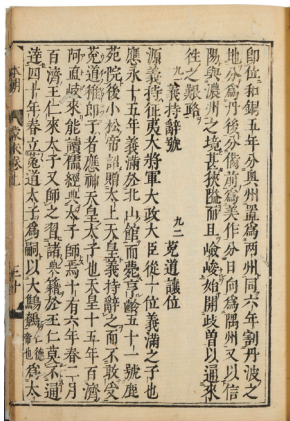 卽位和銅五年分奧州置爲两州同六年割丹波之
地分爲丹後分備前爲美作分日向爲隅州又以信
陽與濃州之境甚狹隘而且嶮峻始開岐曽以通來
徃之艱路
九一 義持辭號
源義持征夷大將軍大政大臣從一位義滿之子也
應永十五年義滿於北山館而薨享齡五十一號鹿
苑院後小松帝詔贈太上天皇義持辭之而不敢受
九二 兎道讓位
兎道稚郎子者應神天皇太子也天皇十五年百濟
阿直岐來能讀儒經典太子師焉十有六年春二月
百濟王仁來太子又師之習諸典籍於王仁莫不通
達四十年春立兎道太子爲嗣以大鷦鷯 仁德帝也 爲太
本朝 蒙求卷上 三十